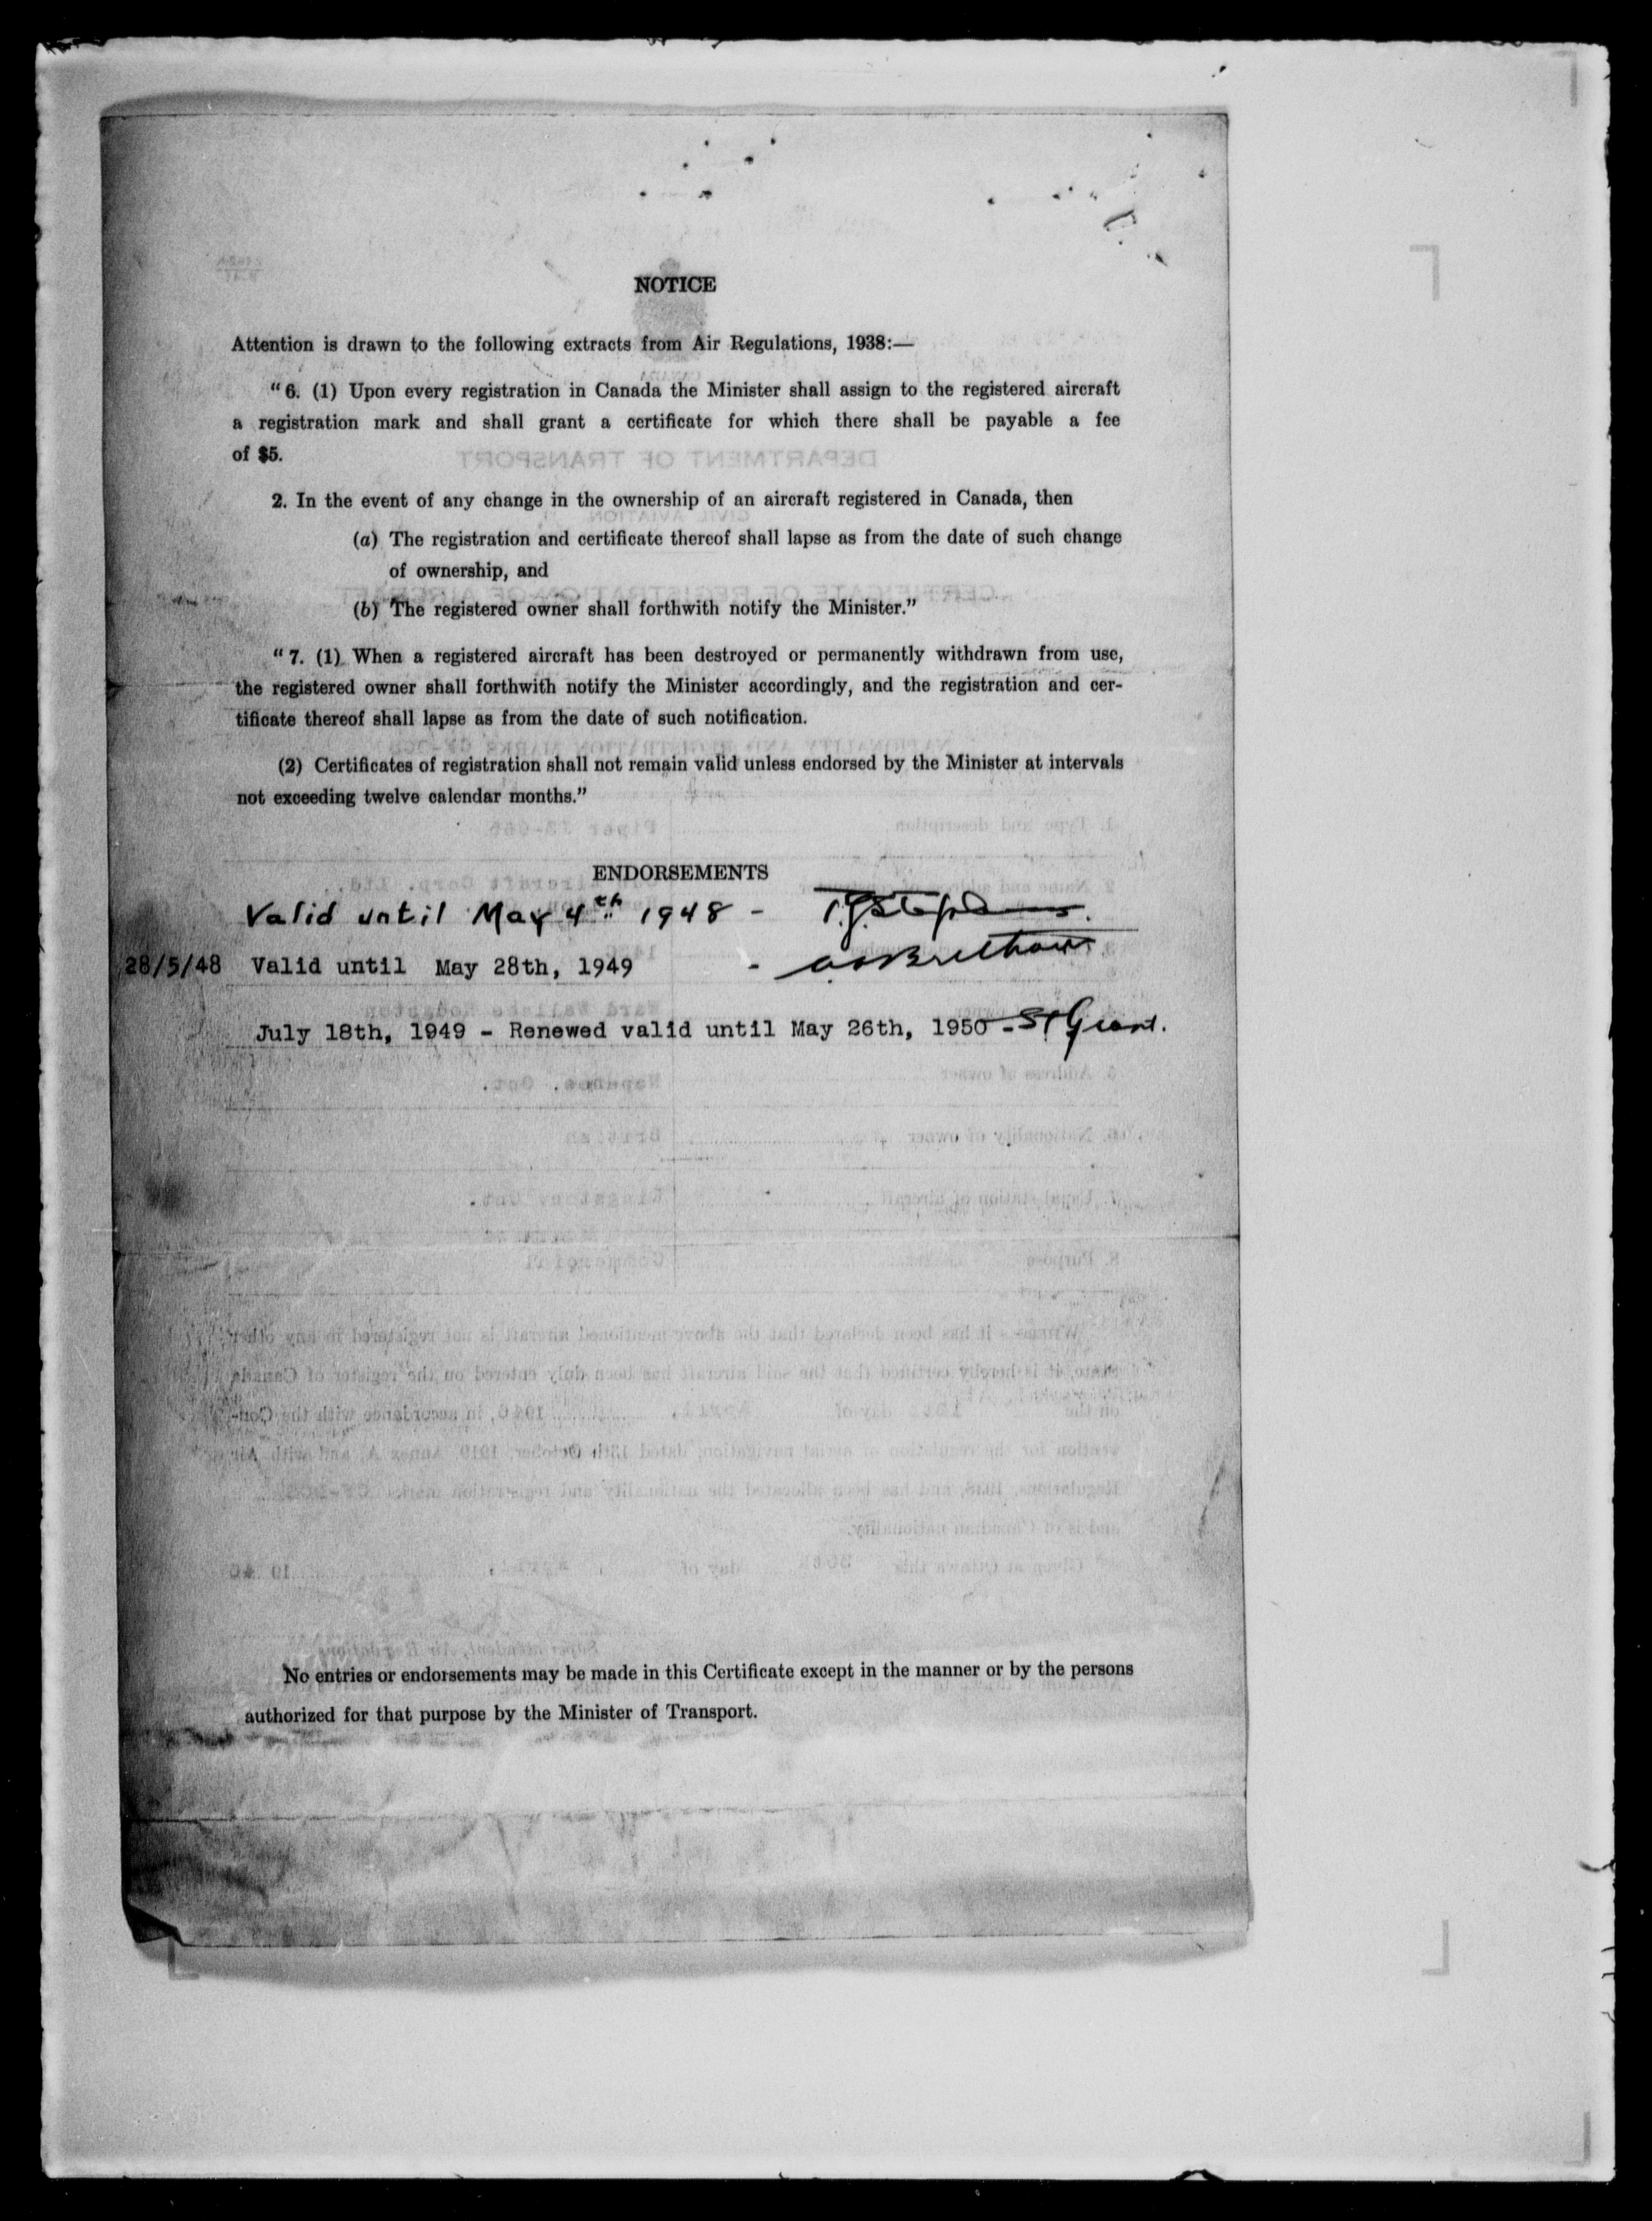 NOTICE
Attention is drawn to the following extracts from Air Regulations, 1938:—
“ 6. (1) Upon every registration in Canada the Minister shall assign to the registered aircraft
a registration mark and shall grant a certificate for which there shall be payable a fee
of $5.
DEPARTMENT OF TRANSPORT
2. In the event of any change in the ownership of an aircraft registered in Canada, then
CIVIL AVIATION
(a) The registration and certificate thereof shall lapse as from the date of such change
of ownership, and
(b) The registered owner shall forthwith notify the Minister.”
“ 7. (1) When a registered aircraft has been destroyed or permanently withdrawn from use,
the registered owner shall forthwith notify the Minister accordingly, and the registration and cer-
tificate thereof shall lapse as from the date of such notification.
(2) Certificates of registration shall not remain valid unless endorsed by the Minister at intervals
not exceeding twelve calendar months.”
1. Type and description
ENDORSEMENTS
Valid until May 4th 1948 -
28/5/48 Valid until May 28th, 1949 -
July 18th, 1949 - Renewed valid until May 26th, 1950 - Grant.
5. Address of owner Napanee, Ont.
6. Nationality of owner British
7. Usual station of aircraft Kingston, Ont.
8. Purpose Commercial
No entries or endorsements may be made in this Certificate except in the manner or by the persons
authorized for that purpose by the Minister of Transport.